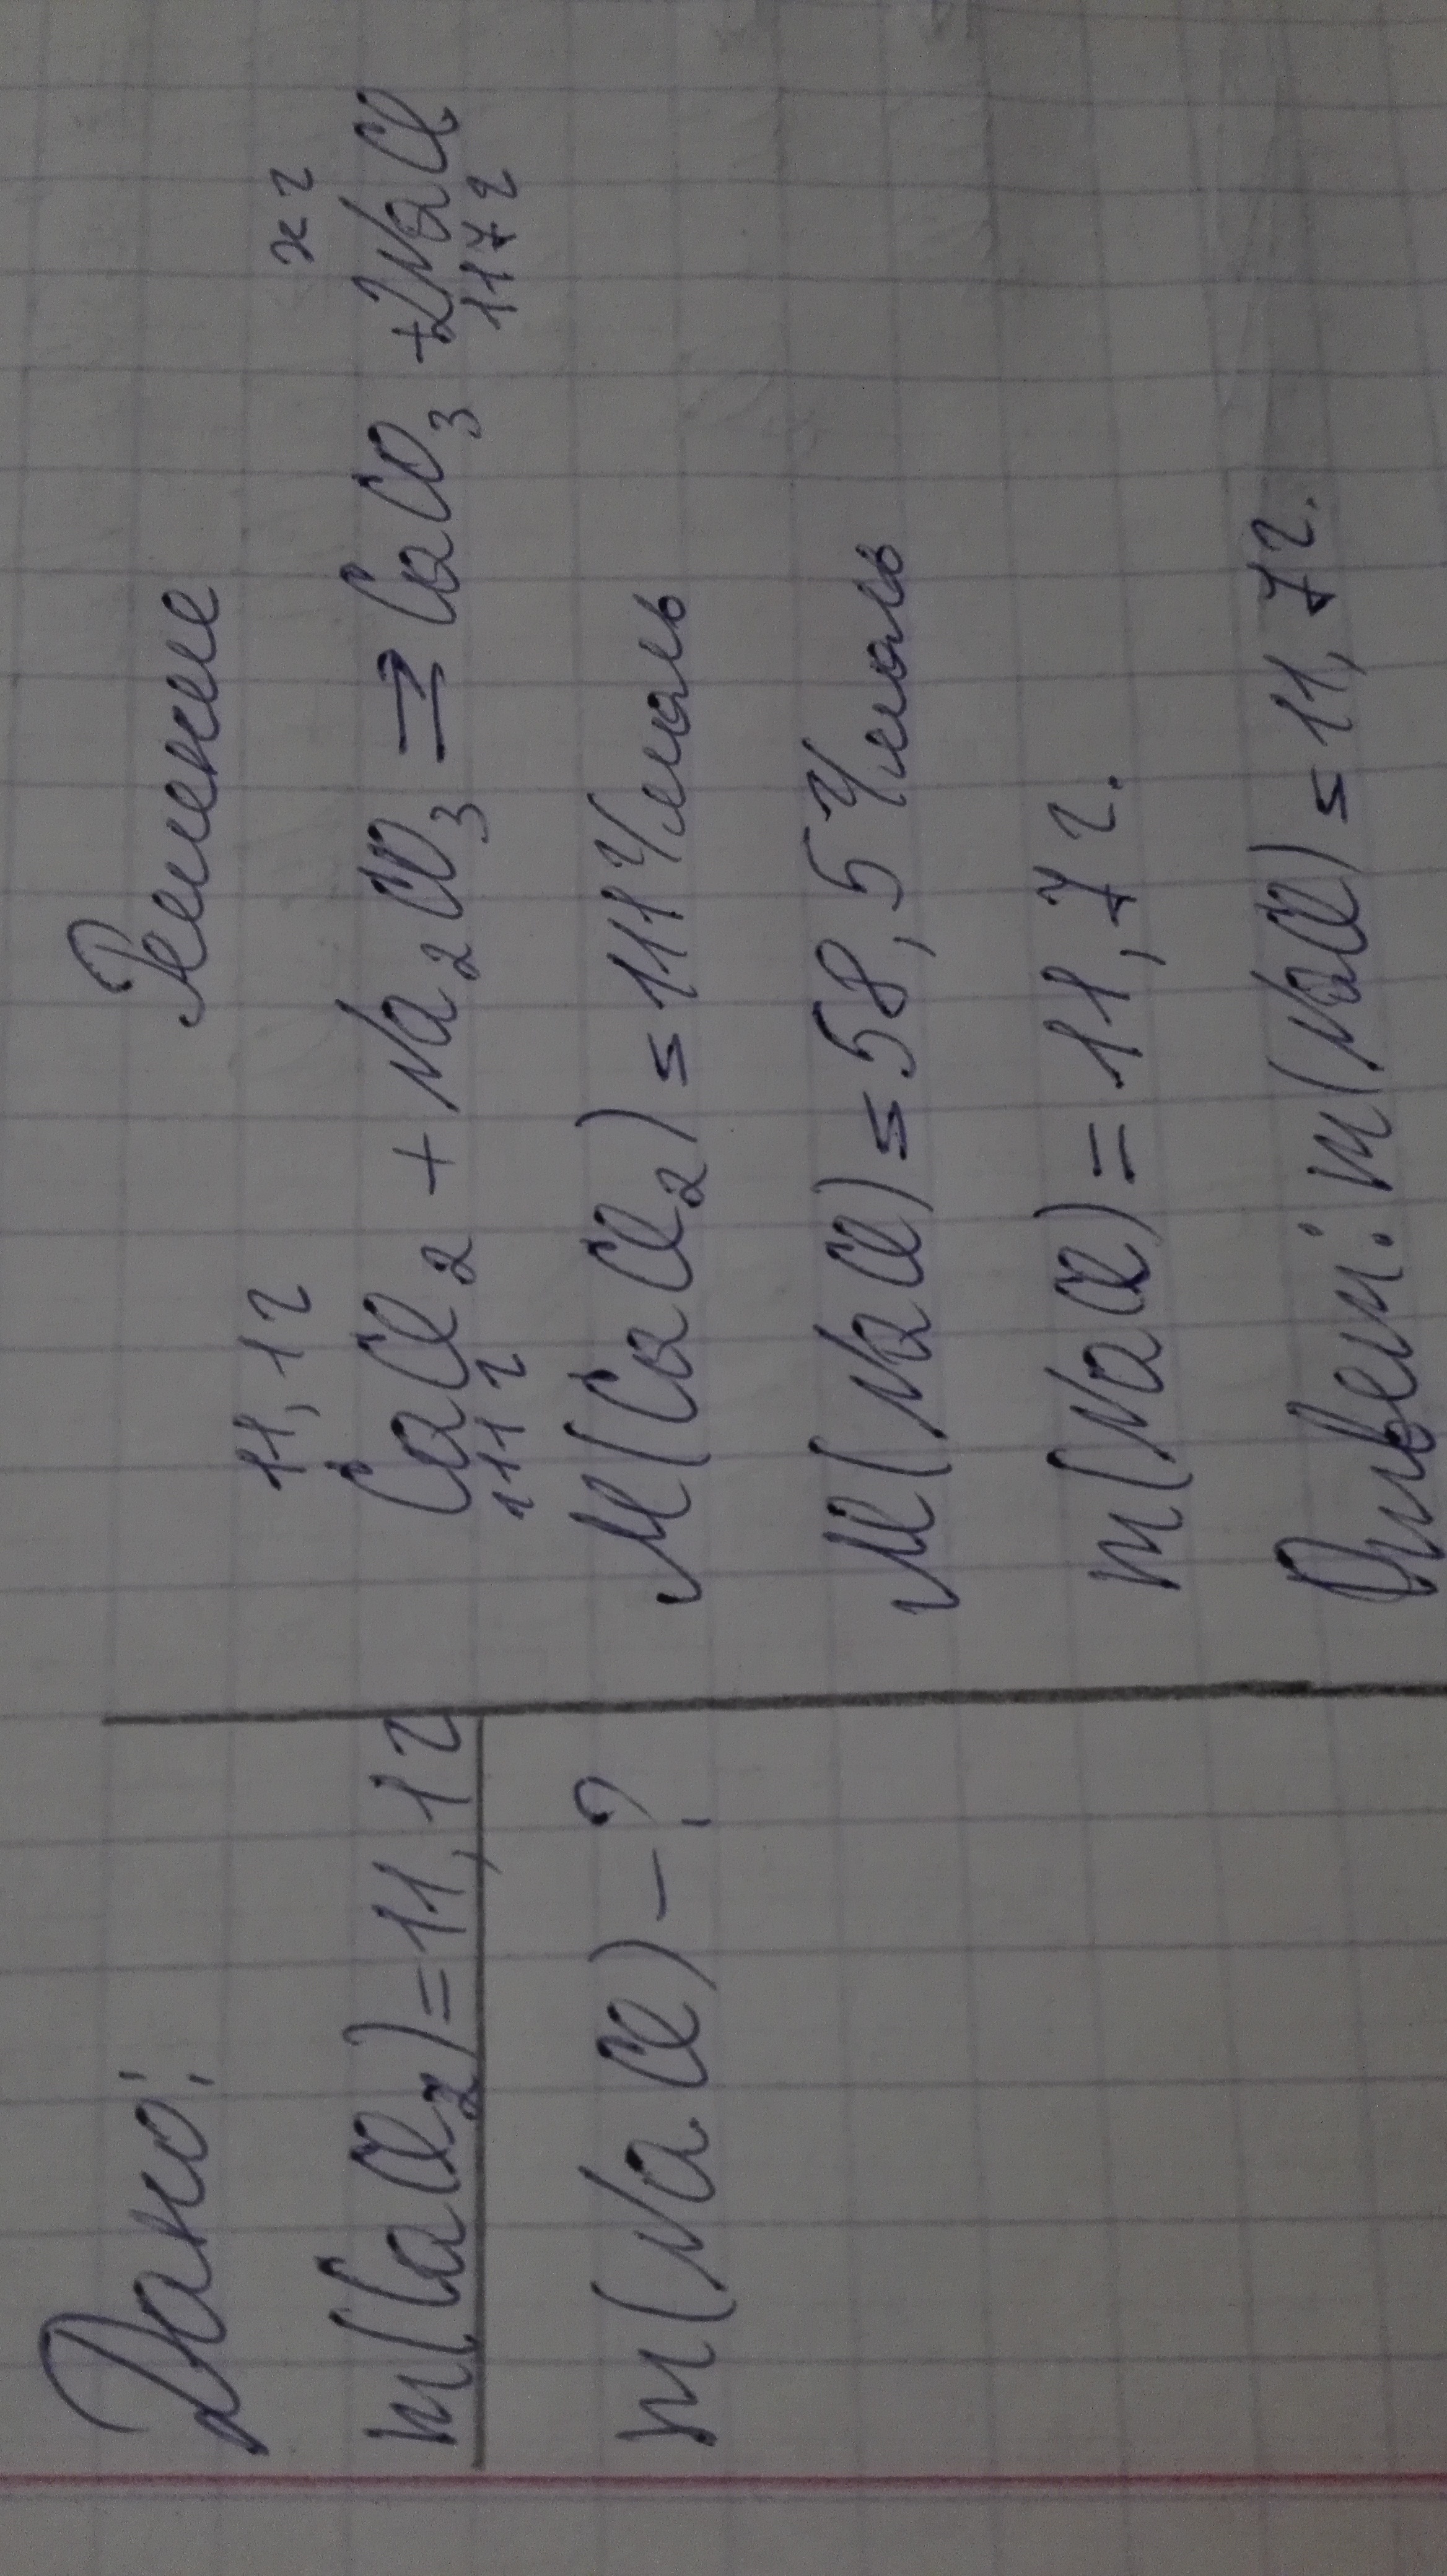 Дано:
m(CaCl₂)=11,1г
m(NaCl)-?
Решение
11,1г xг
CaCl₂ + Na₂CO₃ = CaCO₃ + 2NaCl
111г 117г
M(CaCl₂) = 111 г/моль
M(NaCl) = 58,5 г/моль
m(NaCl) = 11,7г.
Ответ: m(NaCl) = 11,7г.